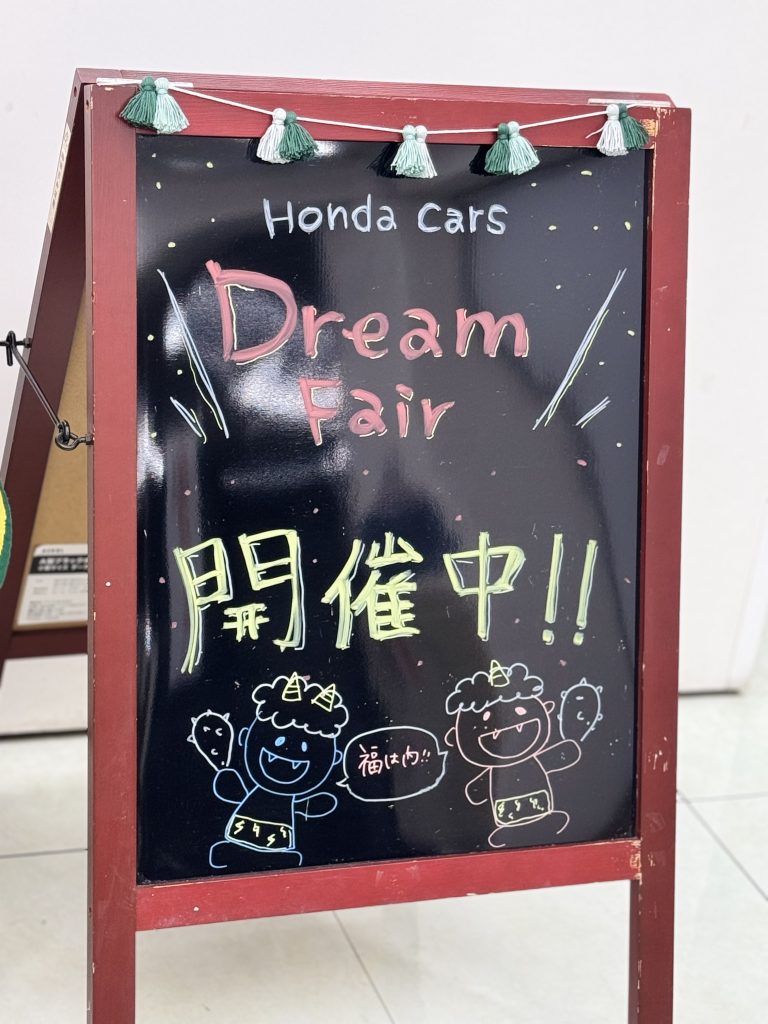 Honda Cars
Dream
Fair
開催中!!
福は内!!